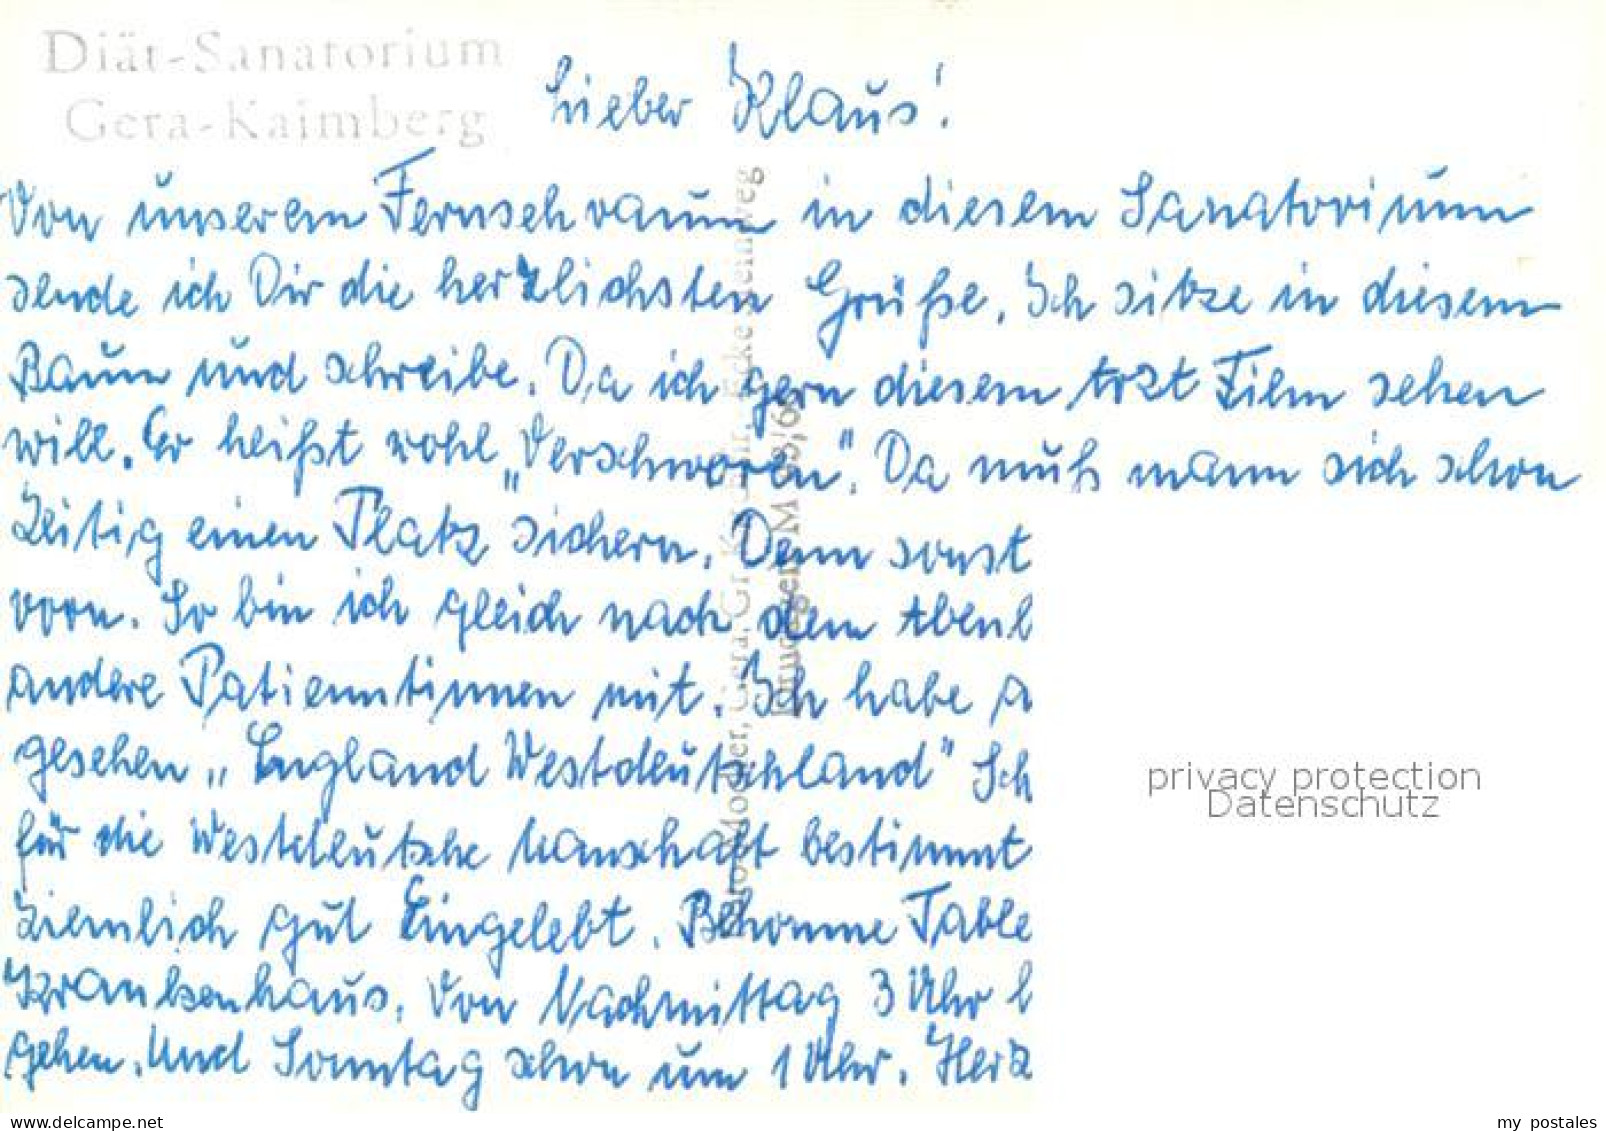 Diät-Sanatorium
Gera-Kaimberg
Lieber Klaus!
Von unserem Fernsehraum in diesem Sanatorium
sende ich Dir die herzlichsten Grüße. Ich sitze in diesem
Raum und schreibe. Da ich gern diesem Arzt Film sehen
will. Er heißt wohl „Verschworen". Da muß mann sich schon
Zeitig einen Platz sichern. Denn sonst
vorn. So bin ich gleich nach dem Abenb
andere Patienntinnen mit. Ich habe a
gesehen „England Westdeutschland" Ich
für die Westdeutsche Manschaft bestimmt
Ziemlich gut Eingelebt. Bekomme Table
Krankenhaus. Von Nachmittag 3 Uhr b
gehen. Und Sonntag schon um 1 Uhr. Herz
privacy protection
Datenschutz
delcampe.net
my_postales